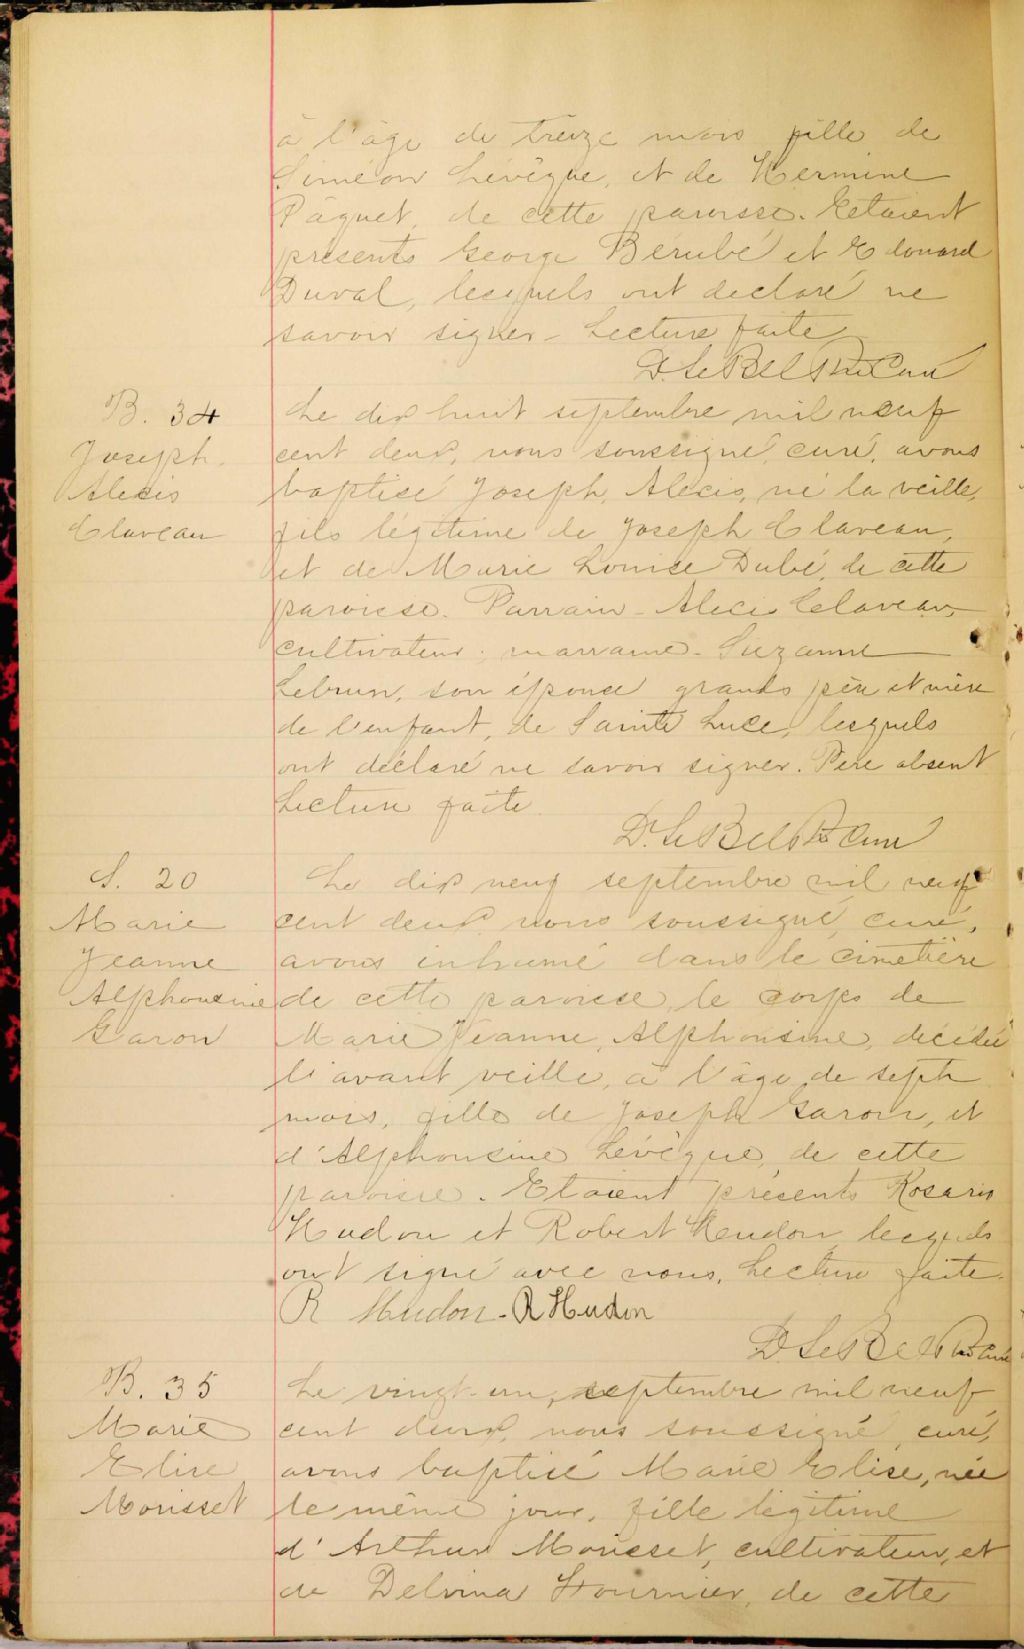 à l'âge de treize mois fille de
Siméon Lévêque, et de Hermine
Pâquet, de cette paroisse. Etaient
présents George Bérubé et Edouard
Duval, lesquels ont déclaré ne
savoir signer - Lecture faite
D. LeBel Ptre Curé
B. 34
Joseph
Alexis
Claveau
Le dix huit septembre mil neuf
cent deux, nous soussigné, curé, avons
baptisé Joseph, Alexis, né la veille,
fils légitime de Joseph Claveau,
et de Marie Louise Dubé, de cette
paroisse. Parrain - Alexis Claveau,
cultivateur; marraine - Suzanne
Lebrun, son épouse grands père et mère
de l'enfant, de Sainte Luce, lesquels
ont déclaré ne savoir signer. Père absent
Lecture faite
D. LeBel Ptre Curé
S. 20
Marie
Jeanne
Alphonsine
Garon
Le dix neuf septembre mil neuf
cent deux nous soussigné, curé,
avons inhumé dans le cimetière
de cette paroisse, le corps de
Marie Jeanne, Alphonsine, décédée
l'avant veille, à l'âge de sept
mois, fille de Joseph Garon, et
d'Alphonsine Lévêque, de cette
paroisse. Etaient présents Rosario
Hudon et Robert Heudon, lesquels
ont signé avec nous, Lecture faite.
R Hudon - R Hudon
D. LeBel Ptre Curé
B. 35
Marie
Elise
Morisset
Le vingt-un, septembre mil neuf
cent deux, nous soussigné, curé,
avons baptisé Marie Elise, née
le même jour, fille légitime
d'Arthur Morisset, cultivateur, et
de Delvina Fournier, de cette